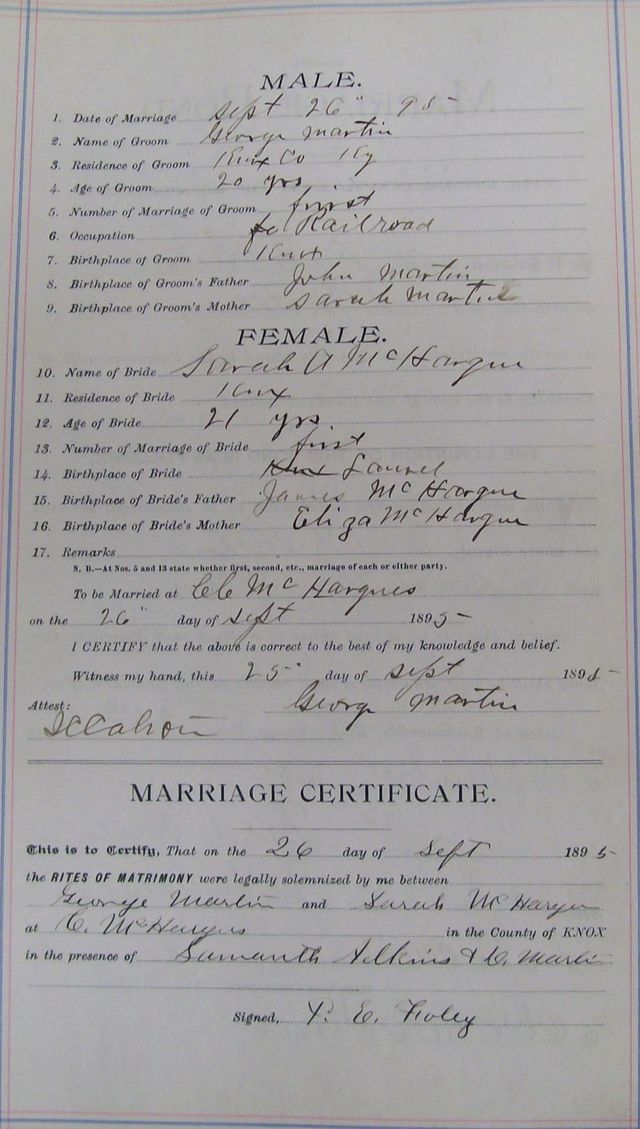 MALE.
1. Date of Marriage Sept 26" 95
2. Name of Groom George Martin
3. Residence of Groom Knox Co Ky
4. Age of Groom 20 yrs
5. Number of Marriage of Groom first
6. Occupation Railroad
7. Birthplace of Groom Knox
8. Birthplace of Groom's Father John Martin
9. Birthplace of Groom's Mother Sarah Martin
FEMALE.
10. Name of Bride Sarah A McHargue
11. Residence of Bride Knox
12. Age of Bride 21 yrs
13. Number of Marriage of Bride first
14. Birthplace of Bride Knox Laurel
15. Birthplace of Bride's Father James McHargue
16. Birthplace of Bride's Mother Eliza McHargue
17. Remarks
N. B.—At Nos. 5 and 13 state whether first, second, etc., marriage of each or either party.
To be Married at McHargues
on the 26" day of Sept 1895
I CERTIFY that the above is correct to the best of my knowledge and belief.
Witness my hand, this 25" day of Sept 1895
George Martin
Attest:
MARRIAGE CERTIFICATE.
This is to Certify, That on the 26 day of Sept 1895
the RITES OF MATRIMONY were legally solemnized by me between
George Martin and Sarah McHargue
at C. McHargus in the County of KNOX
in the presence of Samanth & C. Martin
Signed, E. Foley